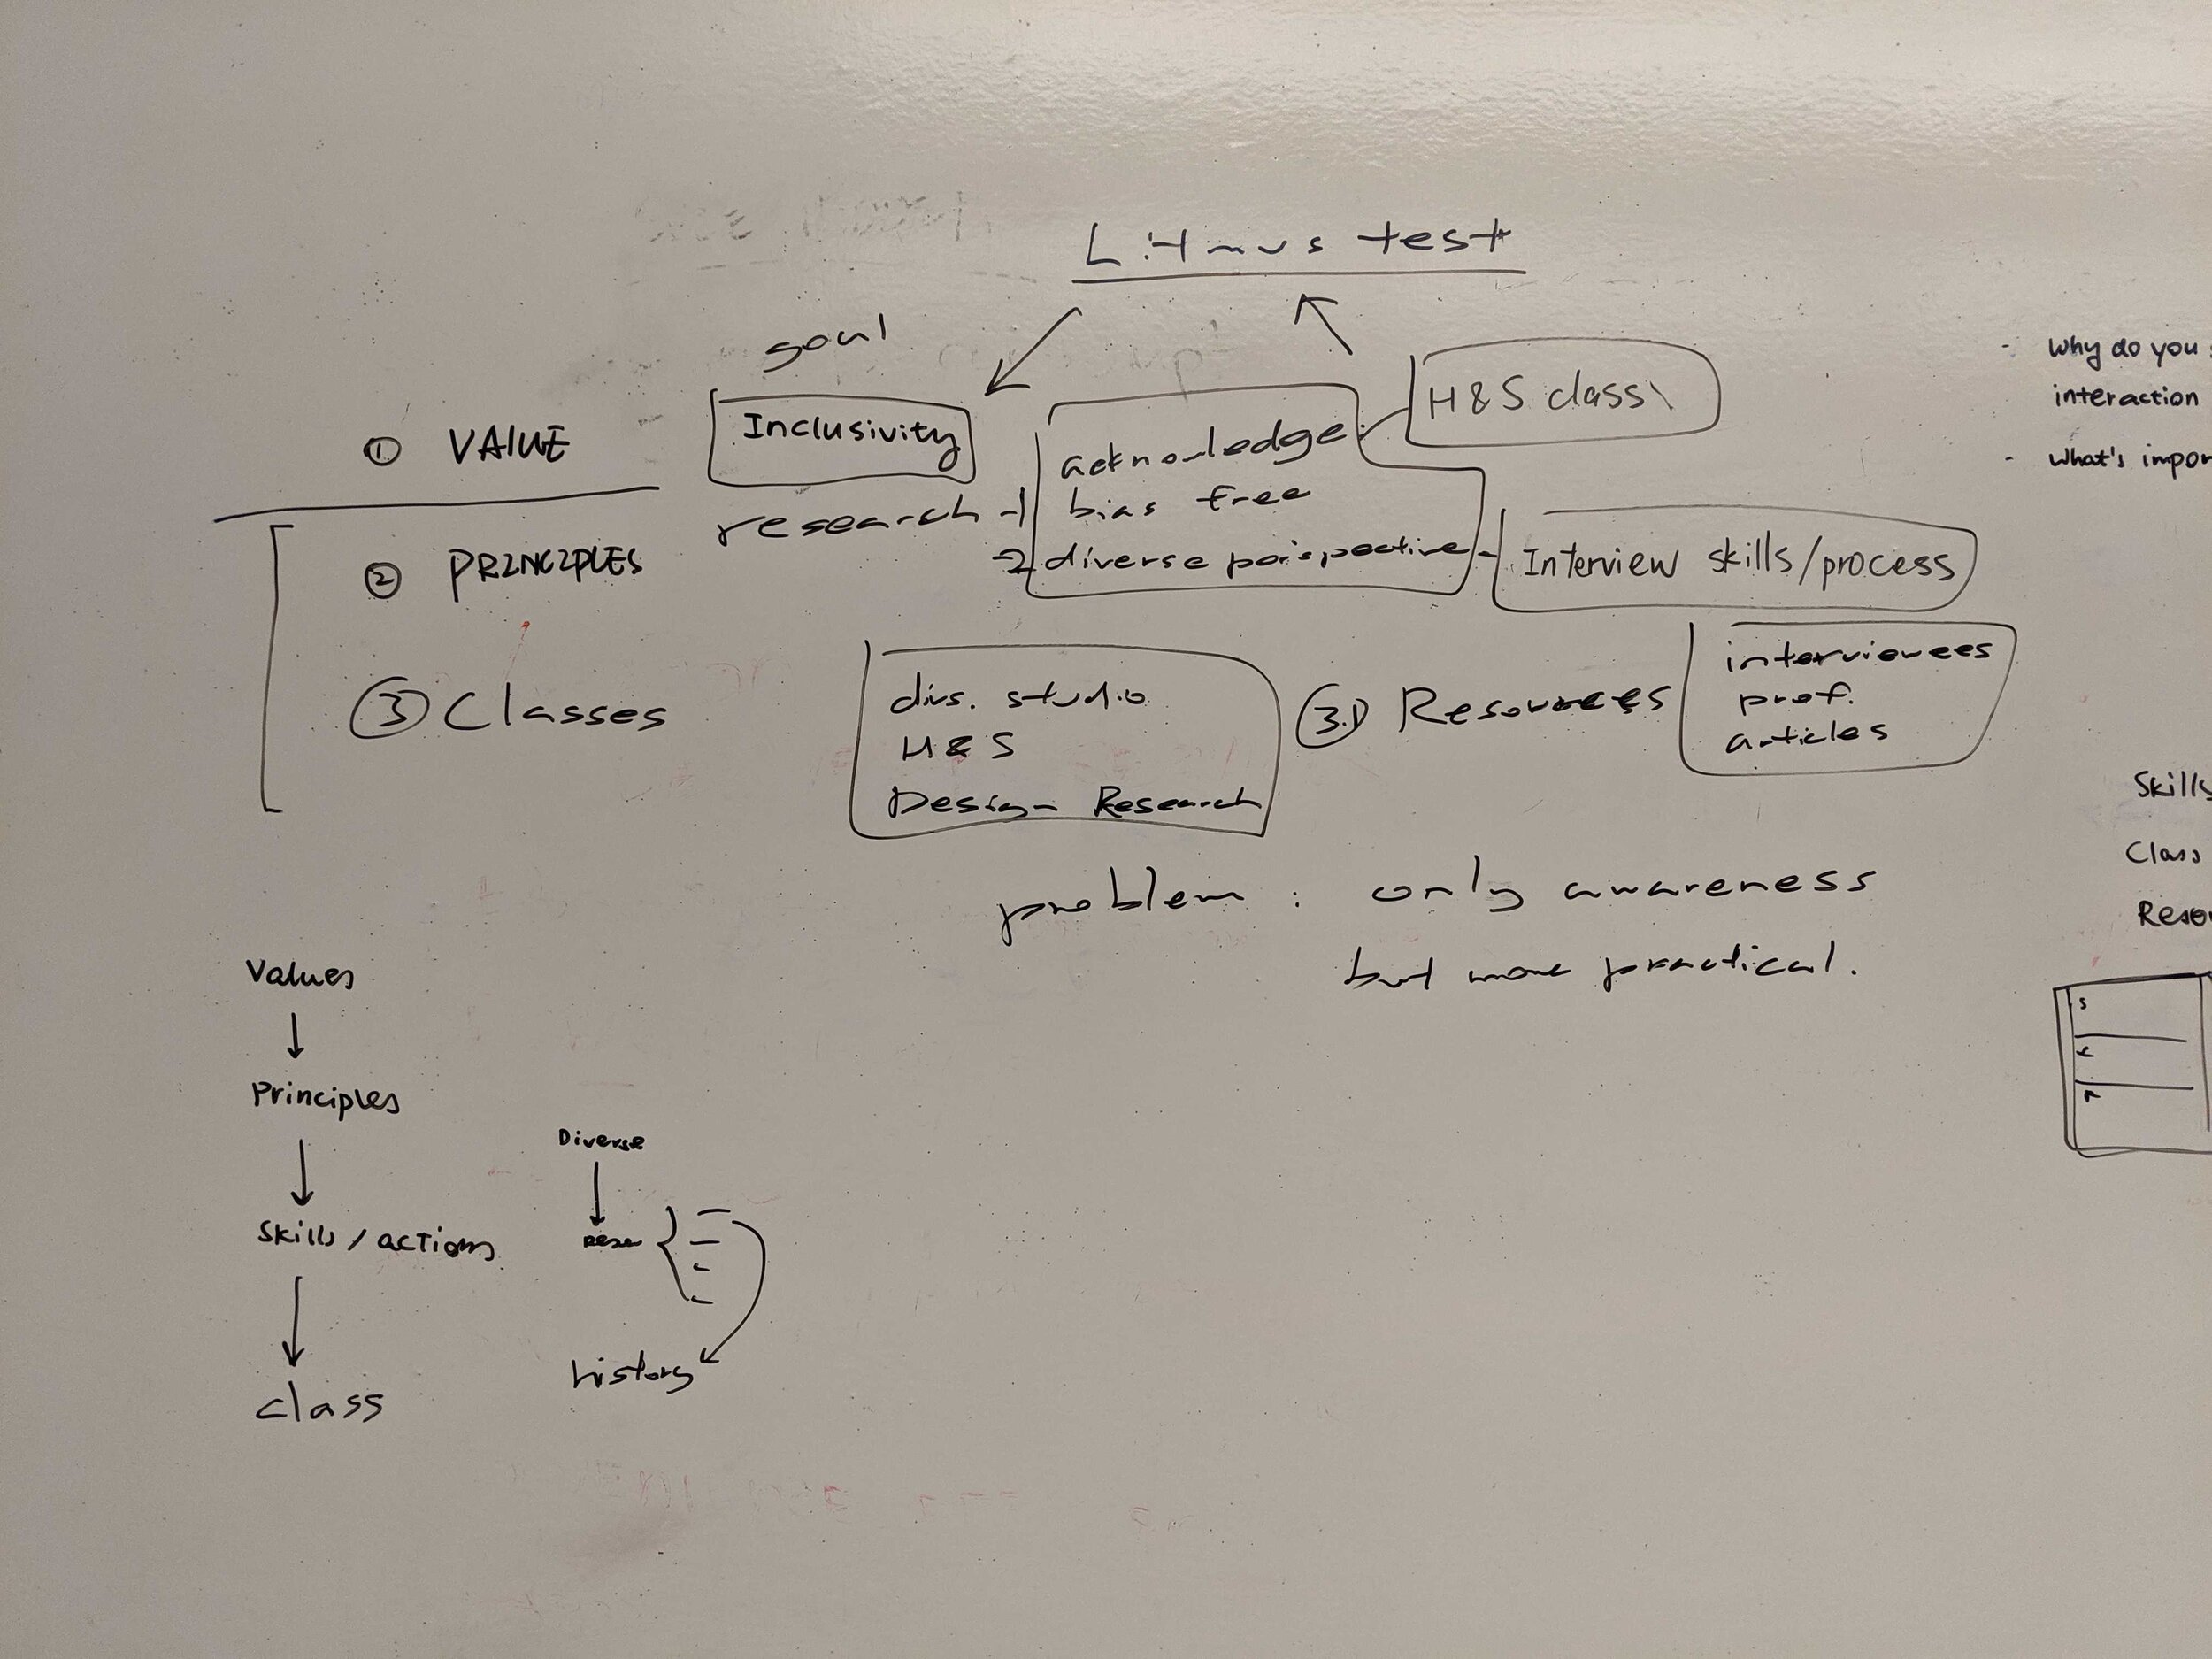 Litmus test
soul
① VALUE
Inclusivity
acknowledge
bias free
2 diverse perspective
H&S class
research -1
② PRINCIPLES
Interview skills/process
③ Classes
divs. studio
H & S
Design Research
3.1 Resources
interviewees
prof.
articles
problem : only awareness
but more practical.
Values
Principles
Skills / actions
class
Diverse
history
- Why do you
interaction
- What's impor
Skills
Class
Resou
s
c
r